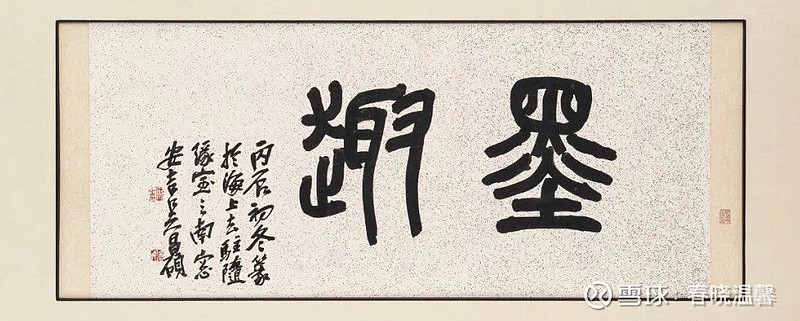 墨趣
丙辰初冬篆
於海上去駐隨
緣室之南窓
安吉吳昌碩
雪球：春晓温馨